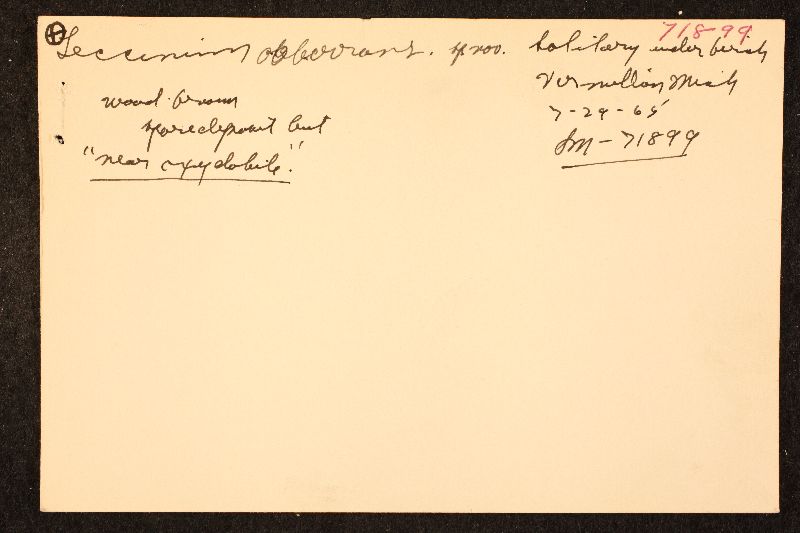 71899
Leccinium solitary under birch
Vermillion Mich
wood brown
7-29-65
spore deposit but
Sm-71899
"near oxydabile."